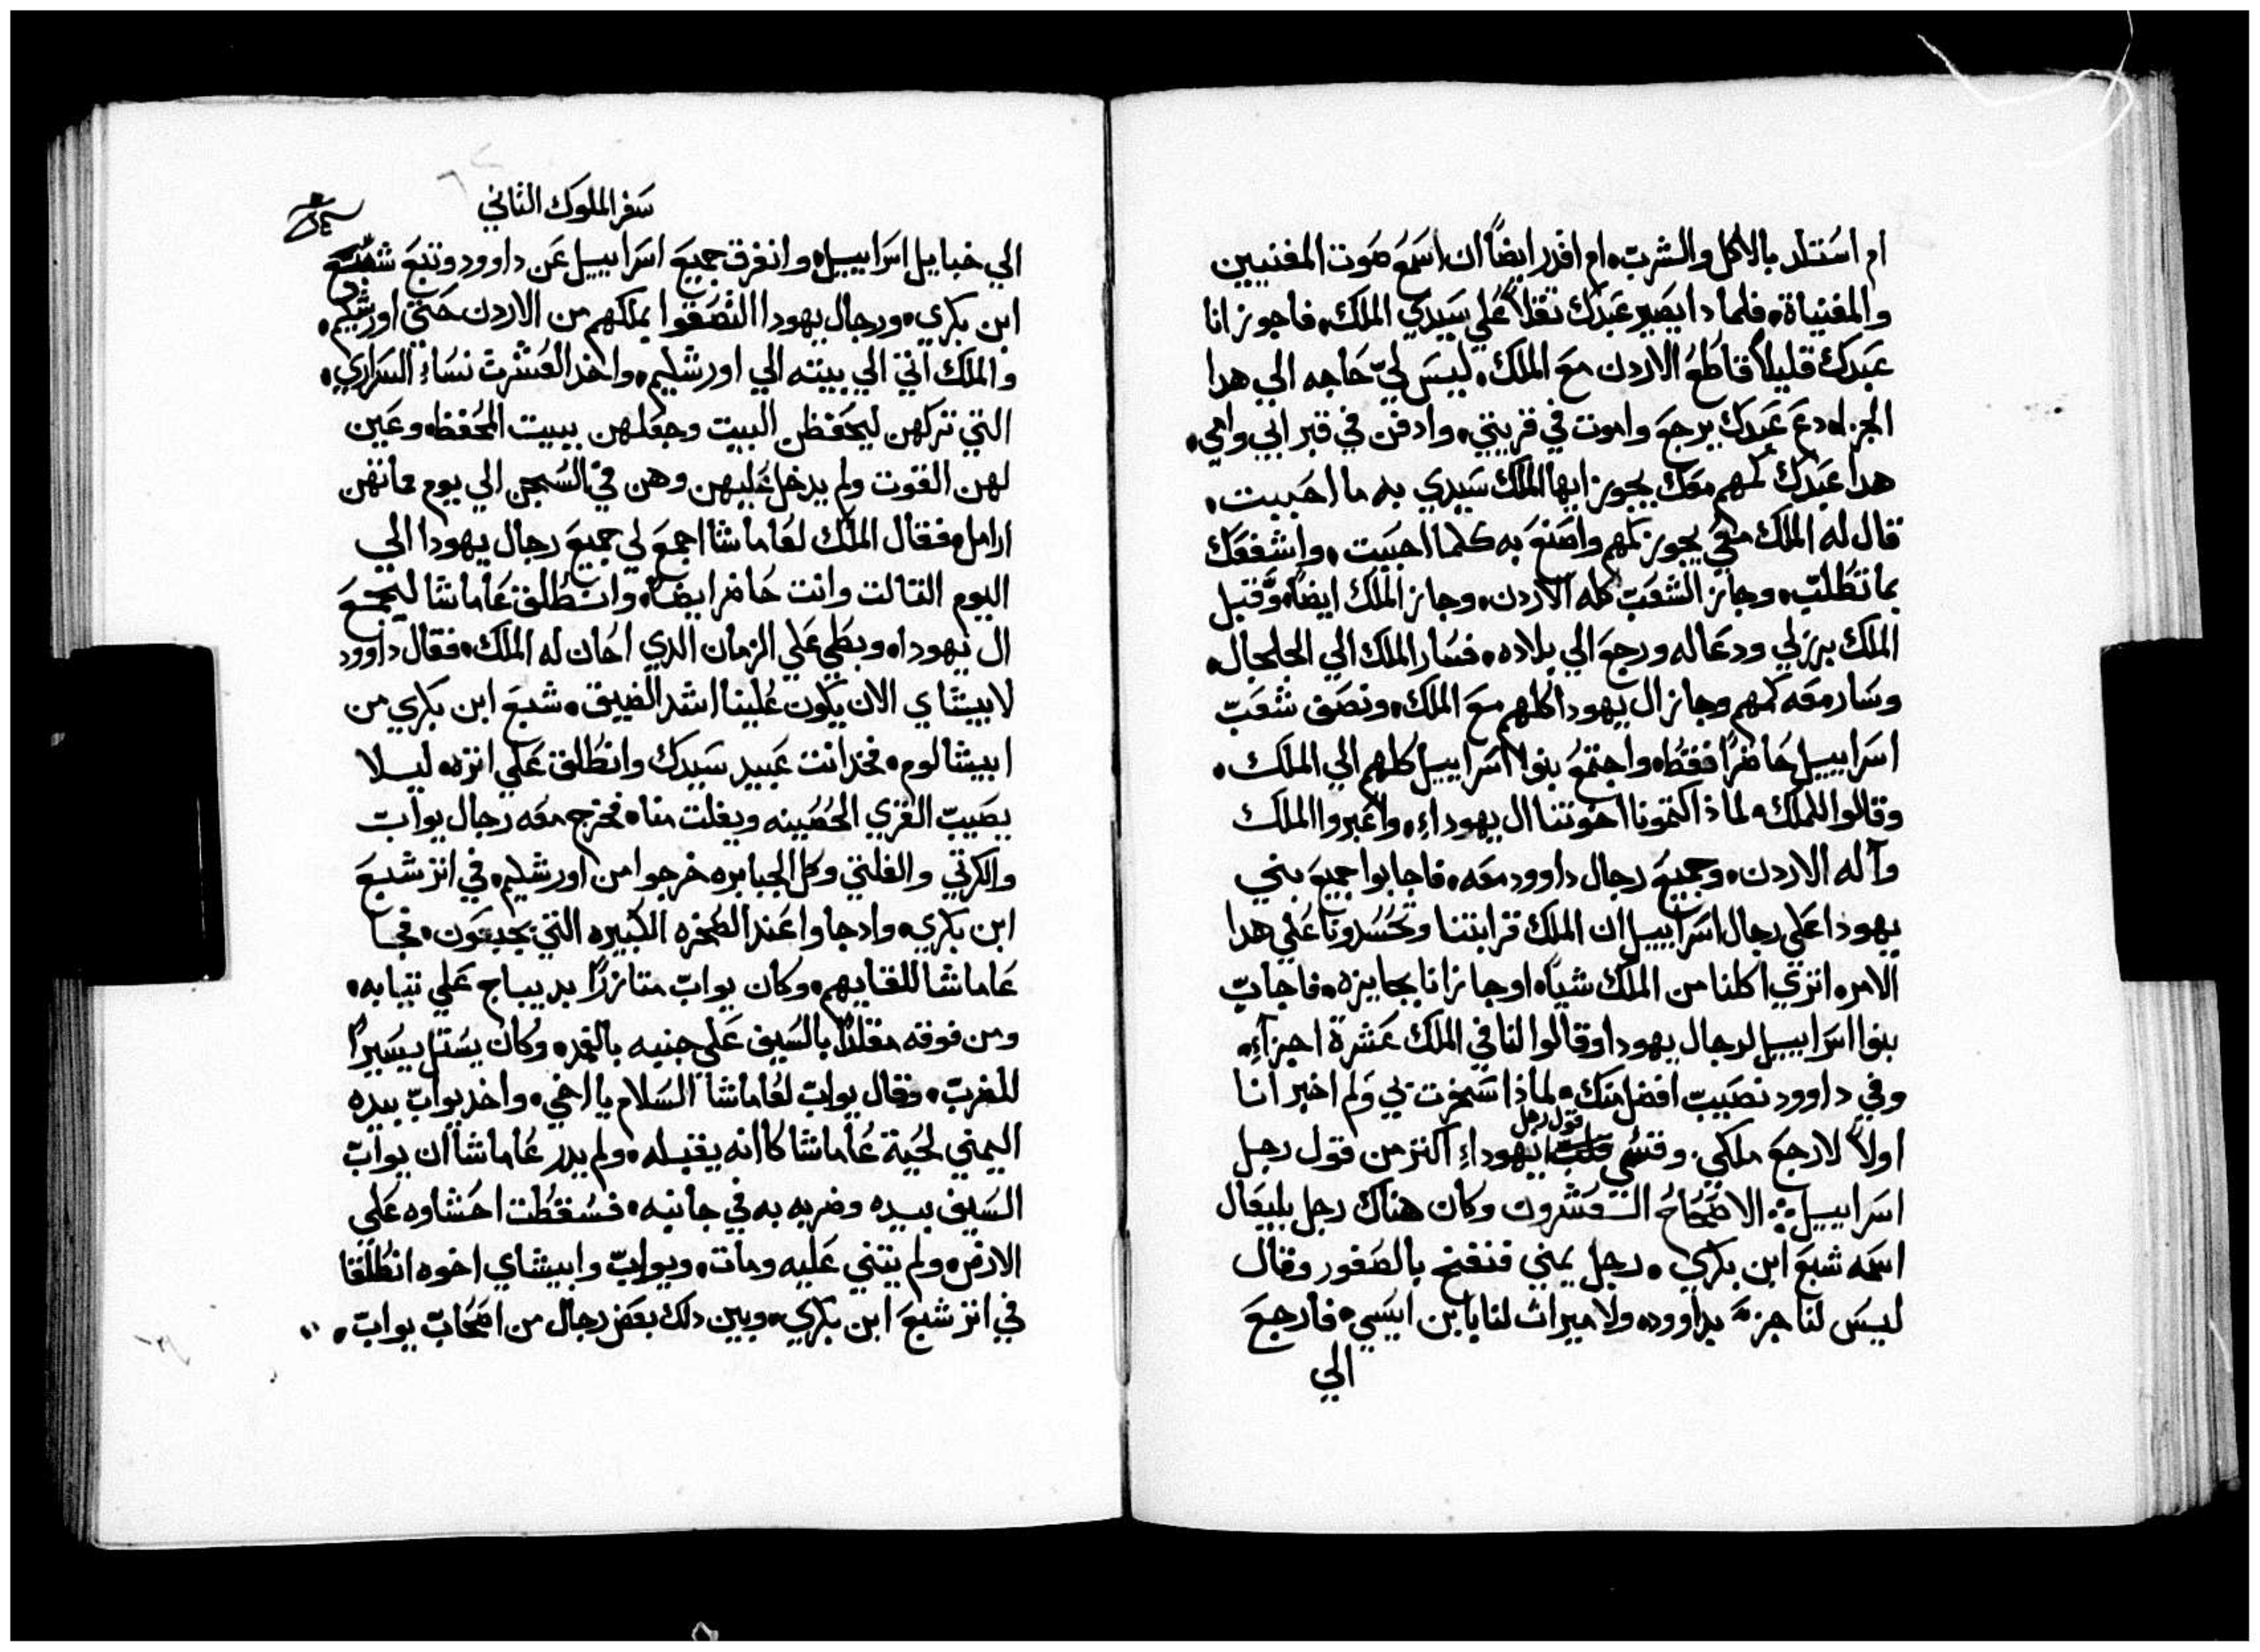 ام استلد بالاكل والشرب ام اقدر ايضاً ان اسمع صوت المغنيين
والمغنياة فلمادا يصير عبدك تقلاً علي سيدي الملك فاجوز انا
عبدك قليلاً قاطع الاردن مع الملك ليس لي حاجه الي هدا
الجزا دع عبدك يرجع واموت في قريتي وادفن في قبر ابي وامي
هدا عبدك كمهم معك يجوز ايها الملك سيدي به ما احببت
قال له الملك معي يجوز كمهم واصنع به كلما احببت واشفعك
بما تطلب وجاز الشعب كله الاردن وجاز الملك ايضاً وقبل
الملك برزلي ودعا له ورجع الي بلاده فسار الملك الي الجلجال
وسار معه كمهم وجاز ال يهودا كلهم مع الملك ونصف شعب
اسراييل حاضراً فقط واجتمع بنوا اسراييل كلهم الي الملك
وقالوا للملك لماذا اكتمونا اخوتنا ال يهوداء واعبروا الملك
وآله الاردن وجميع رجال داوود معه فاجابوا جميع بني
يهودا علي رجال اسراييل ان الملك قرابتنا وتحسدونا علي هدا
الامر اتري اكلنا من الملك شياً اوجازانا بجايزه فاجاب
بنوا اسراييل لرجال يهودا وقالوا لنا في الملك عشرة اجزآء
وفي داوود نصيب افضل منك لماذا سخرت بي ولم اخبر انا
اولاً لارجع ملكي وقسي قول رجل يهوداء اكتر من قول رجل
اسراييل الاصحاح العشرون وكان هناك رجل بليعال
اسمه شبع ابن بكري رجل يمني فنفخ بالصفور وقال
ليس لنا جزء بداوود ولا ميراث لنا يابن ايسي فارجع
الي
سفر الملوك الثاني
الي خبايل اسراييل وانفرق جميع اسراييل عن داوود وتبع شبع
ابن بكري ورجال يهودا التصقوا بملكهم من الاردن حتي اورشليم
والملك اتي الي بيته الي اورشليم واخد العشرت نساء السراري
التي تركهن ليحفظن البيت وجعلهن ببيت المحفظ وعين
لهن القوت ولم يدخل عليهن وهن في السجن الي يوم مماتهن
ارامل فقال الملك لعاماشا اجمع لي جميع رجال يهودا الي
اليوم التالت وانت حاضر ايضاً وانطلق عاماشا ليجمع
ال يهودا وبطي علي الزمان الدي احان له الملك فقال داوود
لابيشاي الان يكون علينا اشد الضيق شبع ابن بكري من
ابيشالوم فخد انت عبيد سيدك وانطلق علي اتره ليلا
يصيب القري الحصينه ويفلت منا فخرج معه رجال يواب
والكرتي والفلتي وكل الجبابره خرجوا من اورشليم في اتر شبع
ابن بكري وادجاوا عند الصخره الكبيره التي بجبعون فجا
عاماشا للقايهم وكان يواب متازراً بديباج علي تيابه
ومن فوقه مقلداً بالسيف علي جنبه بالغمد وكان يستل يسيراً
للضرب وقال يواب لعاماشا السلام يا اخي واخد يواب بيده
اليمني لحية عاماشا كاانه يقبله ولم يدر عاماشا ان يواب
السيف بيده وضربه به في جانبه فسقطت احشاوه علي
الارض ولم يتني عليه ومات ويواب وابيشاي اخوه انطلقا
في اتر شبع ابن بكري وبين دلك بعض رجال من اصحاب يواب